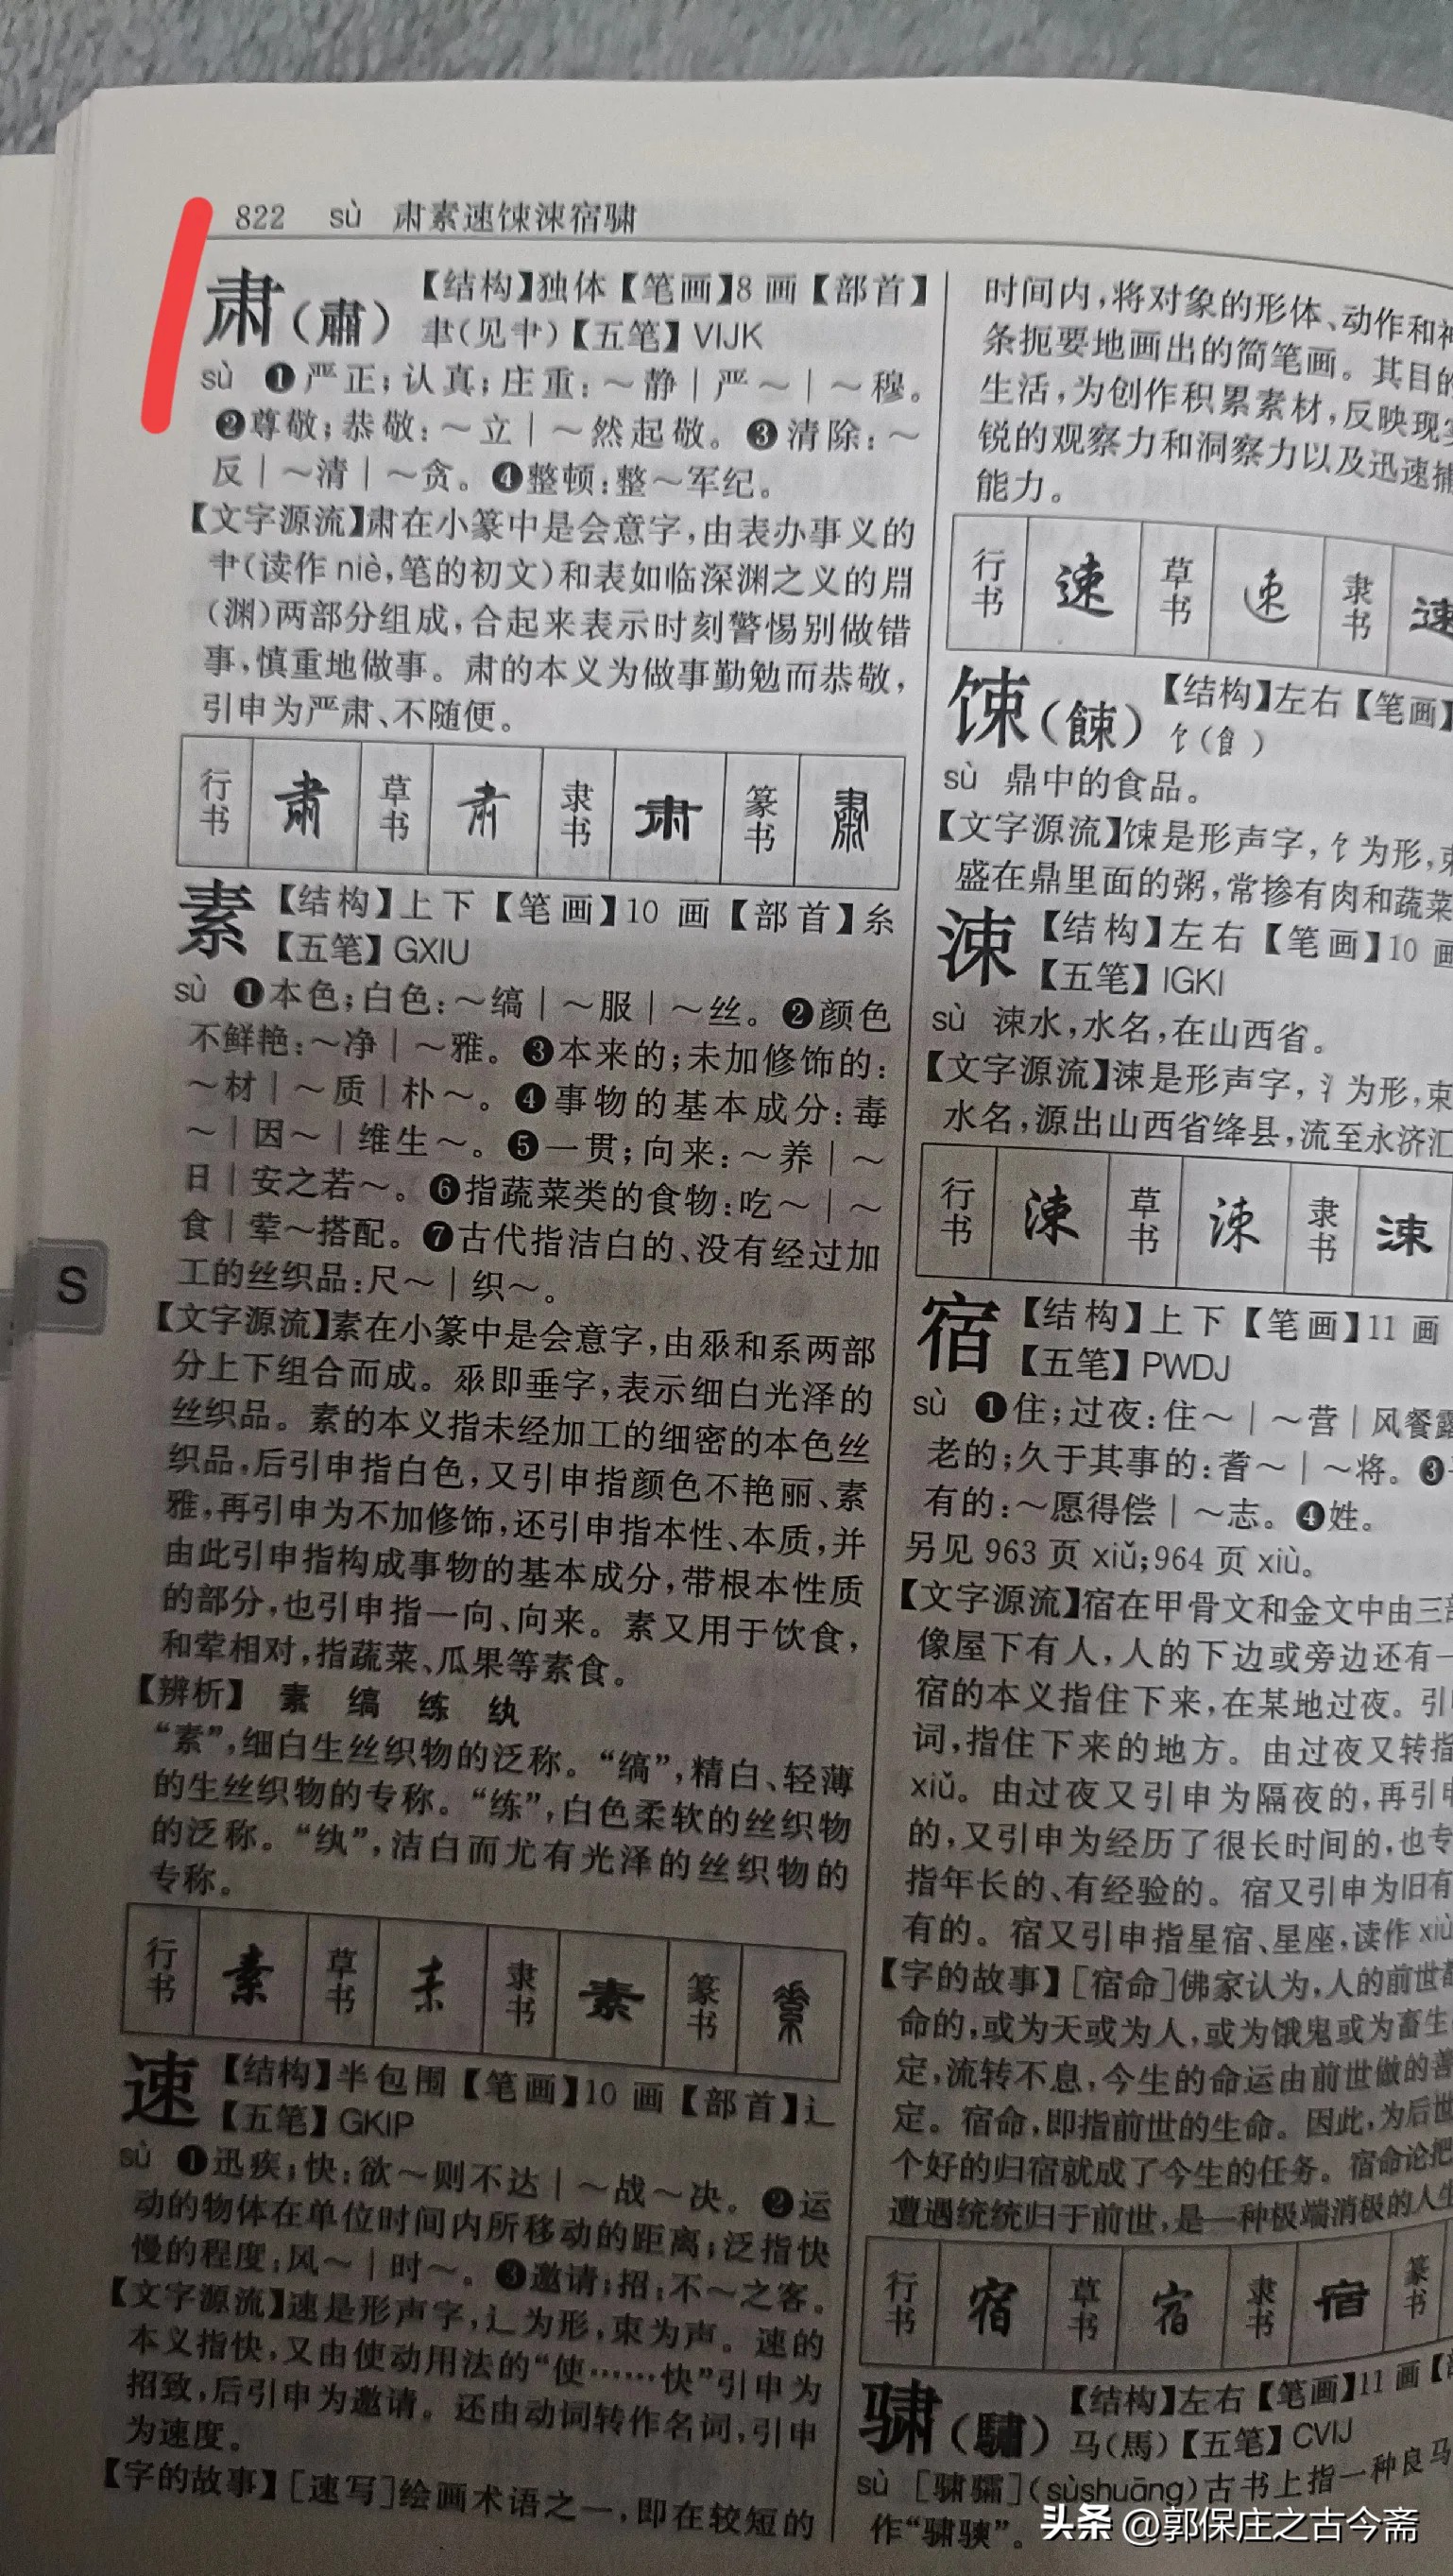 822 sù 肃素速𫗧涑宿骕
肃(肅)
【结构】独体【笔画】8画【部首】
肀(见⺻)【五笔】VIJK
sù ❶严正;认真;庄重:~静|严~|~穆。
❷尊敬;恭敬:~立|~然起敬。❸清除:~
反|~清|~贪。❹整顿:整~军纪。
【文字源流】肃在小篆中是会意字,由表办事义的
肀(读作niè,笔的初文)和表如临深渊之义的𣶒
(渊)两部分组成,合起来表示时刻警惕别做错
事,慎重地做事。肃的本义为做事勤勉而恭敬,
引申为严肃、不随便。
行书 肃 草书 肃 隶书 肃 篆书 肅
素
【结构】上下【笔画】10画【部首】糸
【五笔】GXIU
sù ❶本色;白色:~缟|~服|~丝。❷颜色
不鲜艳:~净|~雅。❸本来的;未加修饰的:
~材|~质|朴~。❹事物的基本成分:毒
~|因~|维生~。❺一贯;向来:~养|~
日|安之若~。❻指蔬菜类的食物:吃~|~
食|荤~搭配。❼古代指洁白的、没有经过加
工的丝织品:尺~|织~。
【文字源流】素在小篆中是会意字,由𠂹和系两部
分上下组合而成。𠂹即垂字,表示细白光泽的
丝织品。素的本义指未经加工的细密的本色丝
织品,后引申指白色,又引申指颜色不艳丽、素
雅,再引申为不加修饰,还引申指本性、本质,并
由此引申指构成事物的基本成分,带根本性质
的部分,也引申指一向、向来。素又用于饮食,
和荤相对,指蔬菜、瓜果等素食。
【辨析】 素 缟 练 纨
“素”,细白生丝织物的泛称。“缟”,精白、轻薄
的生丝织物的专称。“练”,白色柔软的丝织物
的泛称。“纨”,洁白而尤有光泽的丝织物的
专称。
行书 素 草书 素 隶书 素 篆书 素
速
【结构】半包围【笔画】10画【部首】辶
【五笔】GKIP
sù ❶迅疾;快:欲~则不达|~战~决。❷运
动的物体在单位时间内所移动的距离;泛指快
慢的程度:风~|时~。❸邀请;招:不~之客。
【文字源流】速是形声字,辶为形,束为声。速的
本义指快,又由使动用法的“使……快”引申为
招致,后引申为邀请。还由动词转作名词,引申
为速度。
【字的故事】[速写]绘画术语之一,即在较短的
时间内,将对象的形体、动作和神
条扼要地画出的简笔画。其目的
生活,为创作积累素材,反映现实
锐的观察力和洞察力以及迅速捕
能力。
行书 速 草书 速 隶书 速
𫗧(餗)
【结构】左右【笔画】
饣(飠)
sù 鼎中的食品。
【文字源流】𫗧是形声字,饣为形,束
盛在鼎里面的粥,常掺有肉和蔬菜
涑
【结构】左右【笔画】10画
【五笔】IGKI
sù 涑水,水名,在山西省。
【文字源流】涑是形声字,氵为形,束
水名,源出山西省绛县,流至永济汇
行书 涑 草书 涑 隶书 涑
宿
【结构】上下【笔画】11画
【五笔】PWDJ
sù ❶住;过夜:住~|~营|风餐露
老的;久于其事的:耆~|~将。❸
有的:~愿得偿|~志。❹姓。
另见963页xiǔ;964页xiù。
【文字源流】宿在甲骨文和金文中由三部
像屋下有人,人的下边或旁边还有一
宿的本义指住下来,在某地过夜。引
词,指住下来的地方。由过夜又转指
xiǔ。由过夜又引申为隔夜的,再引申
的,又引申为经历了很长时间的,也专
指年长的、有经验的。宿又引申为旧有
有的。宿又引申指星宿、星座,读作xiù
【字的故事】[宿命]佛家认为,人的前世都
命的,或为天或为人,或为饿鬼或为畜生
定,流转不息,今生的命运由前世做的善
定。宿命,即指前世的生命。因此,为后世
个好的归宿就成了今生的任务。宿命论把
遭遇统统归于前世,是一种极端消极的人生
行书 宿 草书 宿 隶书 宿 篆书
骕(驌)
【结构】左右【笔画】11画【
马(馬)【五笔】CVIJ
sù [骕骦](sùshuāng)古书上指一种良马
作“骕𬴃”。
S
头条 @郭保庄之古今斋